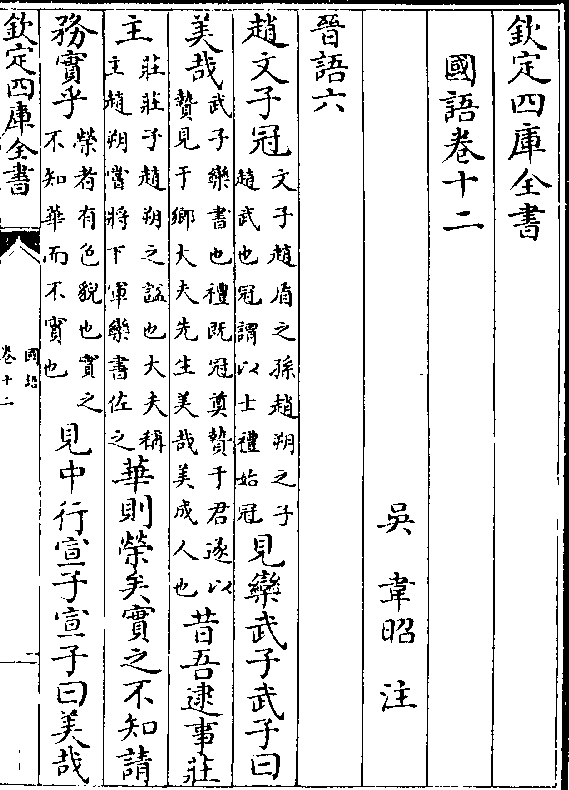 欽定四庫全書
國語卷十二
吳韋昭注
晉語六
趙文子冠文子趙盾之孫趙朔之子趙武也冠謂以士禮始冠見欒武子武子曰
美哉武子欒書也禮既冠奠贄于君遂以贄見于鄉大夫先生美哉美成人也昔吾逮事莊
主莊莊子趙朔之諡也大夫稱主趙朔嘗將下軍欒書佐之華則榮矣實之不知請
務實乎榮者有色貌也實之不知華而不實也見中行宣子宣子曰美哉
欽定四庫全書
國語
卷十二